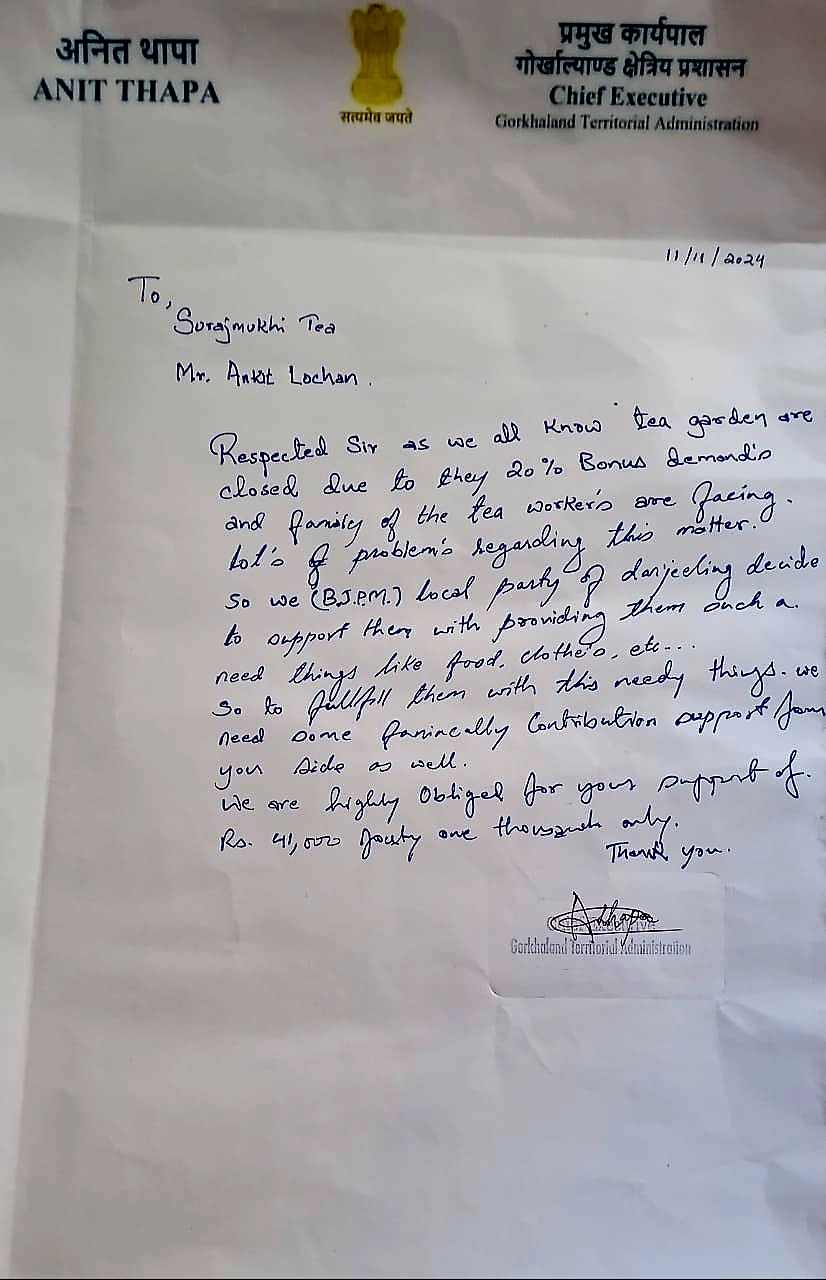 अनित थापा
ANIT THAPA
सत्यमेव जयते
प्रमुख कार्यपाल
गोर्खाल्याण्ड क्षेत्रिय प्रशासन
Chief Executive
Gorkhaland Territorial Administration
11/11/2024
To,
Surajmukhi Tea
Mr. Ankit Lochan.
Respected Sir as we all know tea garden are
closed due to they 20% Bonus demand's
and family of the tea worker's are facing.
lot's of problem's regarding this matter.
So we (B.J.P.M.) local party of darjeeling decide
to support them with providing them such a.
need things like food, clothe's, etc...
So to fullfill them with this needy things. we
need some fanincally Contribution support from
your side as well.
We are highly Obliged for your support of.
Rs. 41,000 fourty one thousand only.
Thank you.
AThapa
Gorkhaland Territorial Administration